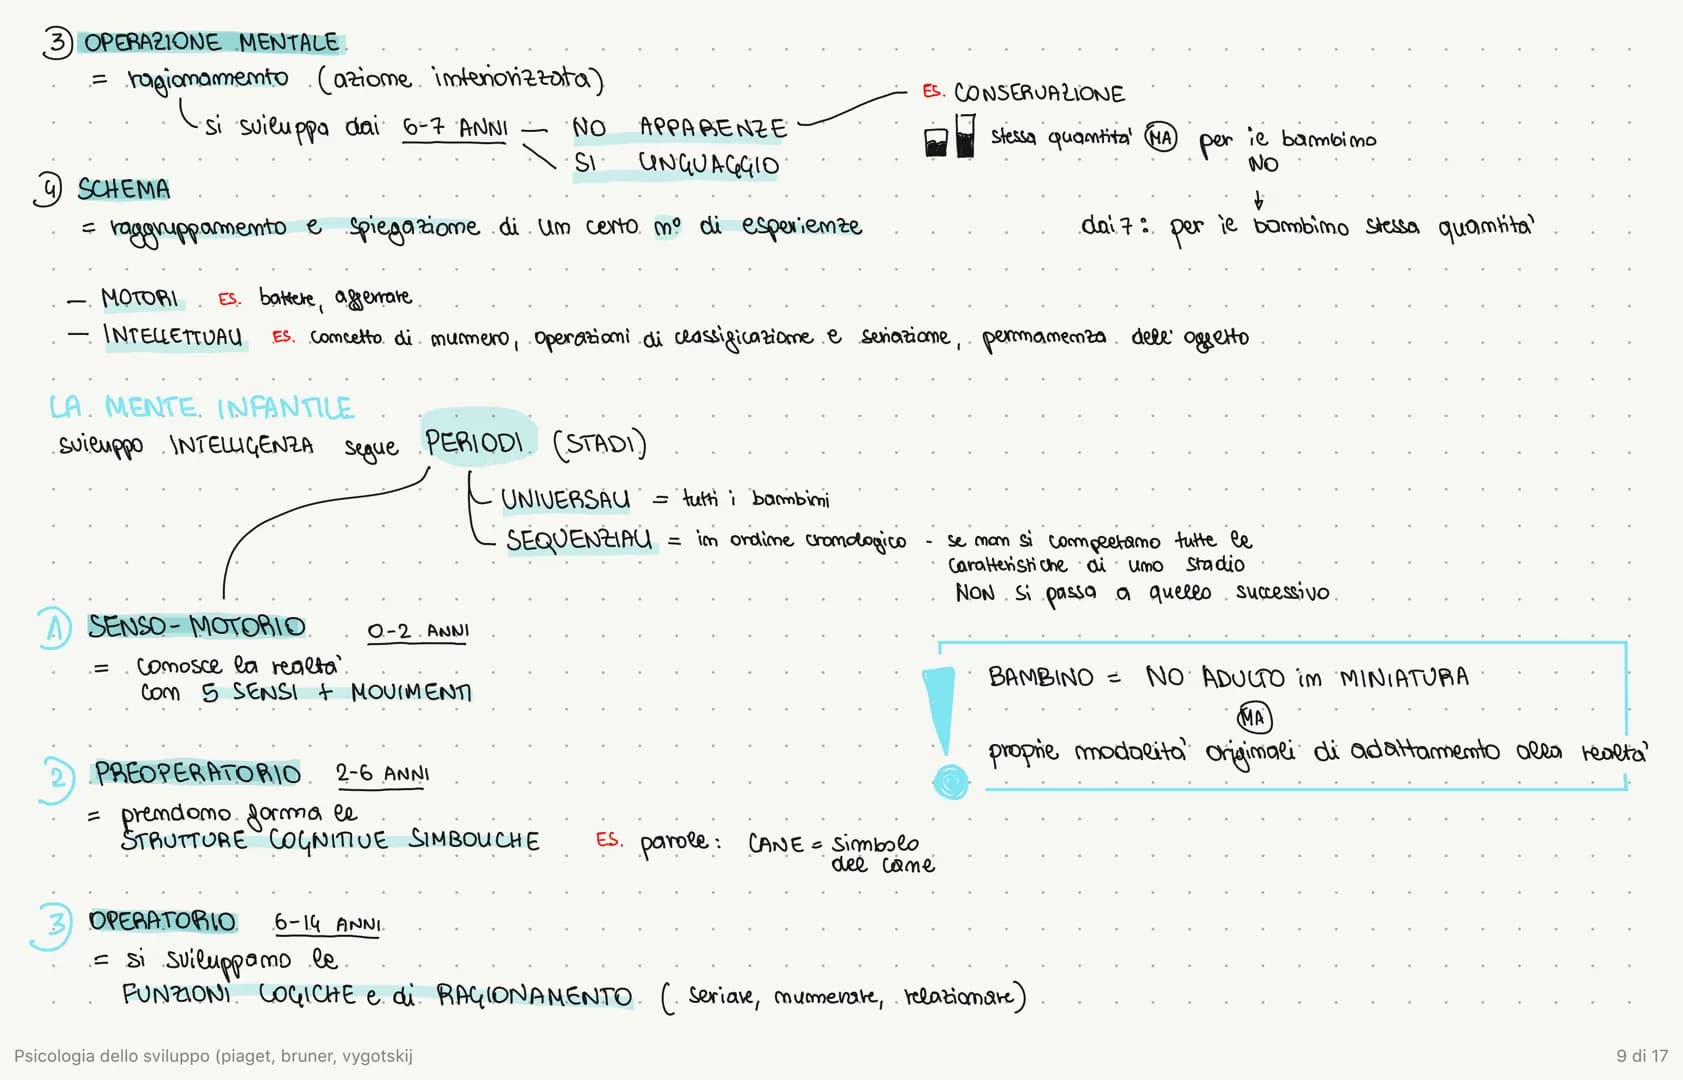 3 OPERAZIONE MENTALE
= ragionamento (azione interiorizzata)
si sviluppa dai 6-7 ANNI — NO APPARENZE
SI LINGUAGGIO
ES. CONSERVAZIONE
stessa quantità MA per il bambino
NO
dai 7: per il bambino stessa quantità
4 SCHEMA
= raggruppamento e spiegazione di un certo n° di esperienze
— MOTORI ES. battere, afferrare
— INTELLETTUALI ES. concetto di numero, operazioni di classificazione e seriazione, permanenza dell'oggetto
LA MENTE INFANTILE
sviluppo INTELLIGENZA segue PERIODI (STADI)
UNIVERSALI = tutti i bambini
SEQUENZIALI = in ordine cronologico - se non si completano tutte le
caratteristiche di uno stadio
NON si passa a quello successivo
1 SENSO-MOTORIO 0-2 ANNI
= conosce la realtà
con 5 SENSI + MOVIMENTI
! BAMBINO = NO ADULTO in MINIATURA
MA
proprie modalità originali di adattamento alla realtà
2 PREOPERATORIO 2-6 ANNI
= prendono forma le
STRUTTURE COGNITIVE SIMBOLICHE ES. parole: CANE = simbolo
del cane
3 OPERATORIO 6-14 ANNI
= si sviluppano le
FUNZIONI LOGICHE e di RAGIONAMENTO (seriare, numerare, relazionare)
Psicologia dello sviluppo (piaget, bruner, vygotskij
9 di 17